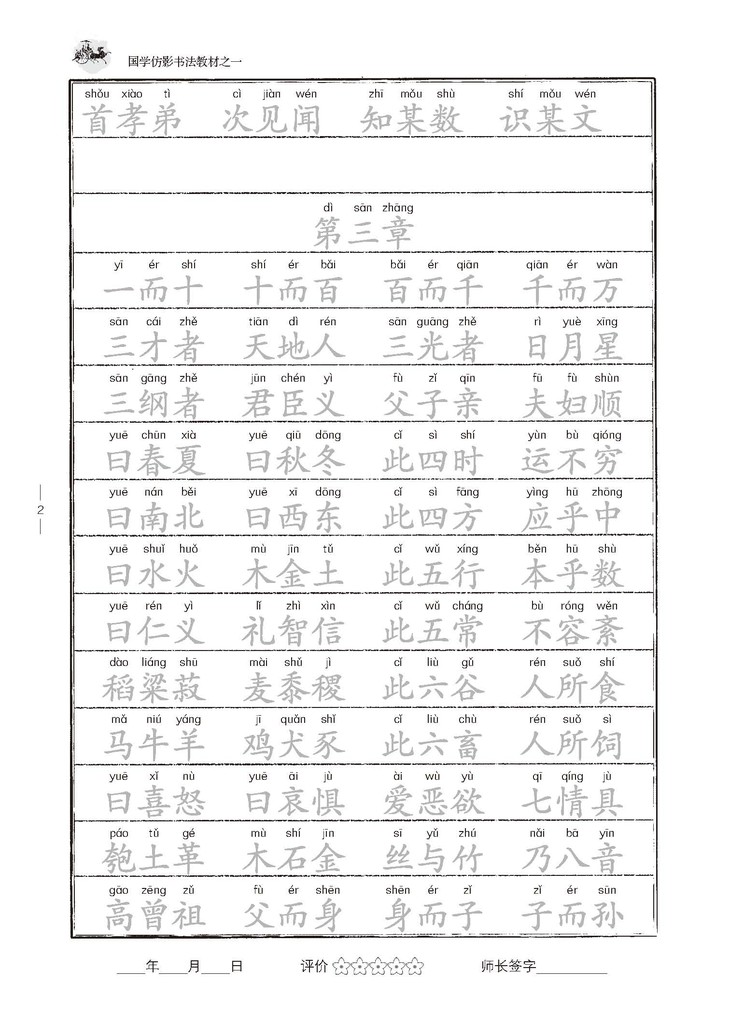 国学仿影书法教材之一
shǒu xiào tì cì jiàn wén zhī mǒu shù shí mǒu wén
首孝弟 次见闻 知某数 识某文
dì sān zhāng
第三章
yī ér shí shí ér bǎi bǎi ér qiān qiān ér wàn
一而十 十而百 百而千 千而万
sān cái zhě tiān dì rén sān guāng zhě rì yuè xīng
三才者 天地人 三光者 日月星
sān gāng zhě jūn chén yì fù zǐ qīn fū fù shùn
三纲者 君臣义 父子亲 夫妇顺
yuē chūn xià yuē qiū dōng cǐ sì shí yùn bù qióng
曰春夏 曰秋冬 此四时 运不穷
yuē nán běi yuē xī dōng cǐ sì fāng yìng hū zhōng
曰南北 曰西东 此四方 应乎中
2
yuē shuǐ huǒ mù jīn tǔ cǐ wǔ xíng běn hū shù
曰水火 木金土 此五行 本乎数
yuē rén yì lǐ zhì xìn cǐ wǔ cháng bù róng wěn
曰仁义 礼智信 此五常 不容紊
dào liáng shū mài shǔ jì cǐ liù gǔ rén suǒ shí
稻粱菽 麦黍稷 此六谷 人所食
mǎ niú yáng jī quǎn shǐ cǐ liù chù rén suǒ sì
马牛羊 鸡犬豕 此六畜 人所饲
yuē xǐ nù yuē āi jù ài wù yù qī qíng jù
曰喜怒 曰哀惧 爱恶欲 七情具
páo tǔ gé mù shí jīn sī yǔ zhú nǎi bā yīn
匏土革 木石金 丝与竹 乃八音
gāo zēng zǔ fù ér shēn shēn ér zǐ zǐ ér sūn
高曾祖 父而身 身而子 子而孙
____年____月____日 评价 师长签字__________